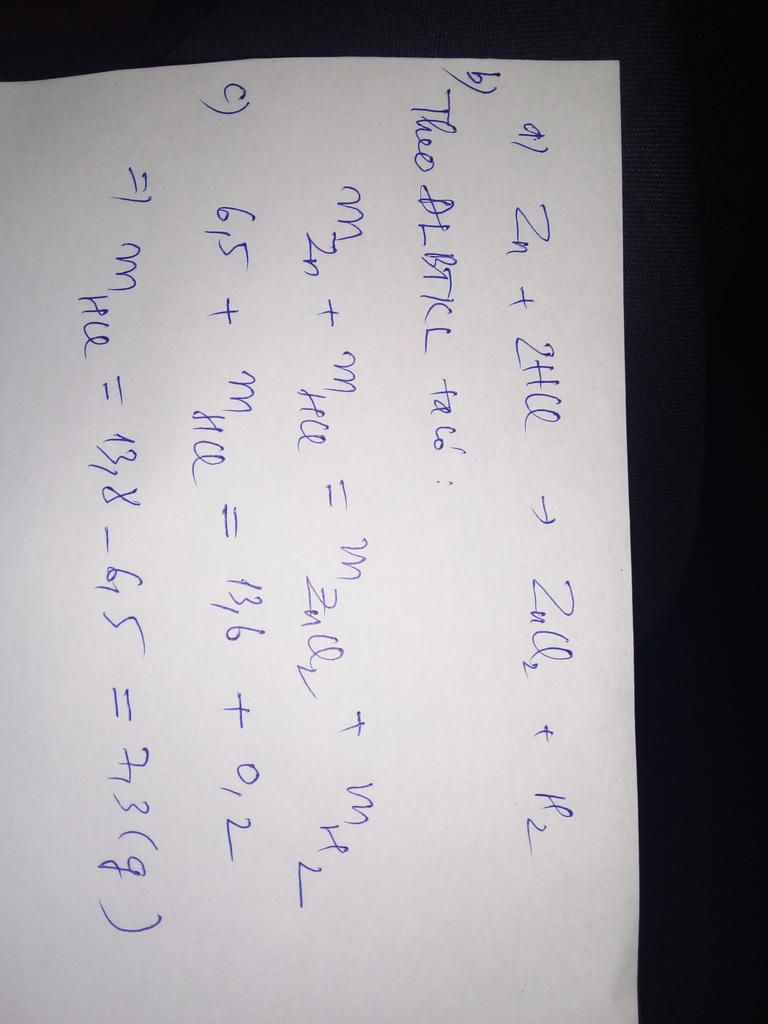 a) Zn + 2HCl → ZnCl₂ + H₂
b) Theo ĐLBTKL ta có:
m_Zn + m_HCl = m_ZnCl₂ + m_H₂
c) 6,5 + m_HCl = 13,6 + 0,2
=) m_HCl = 13,8 - 6,5 = 7,3 (g)